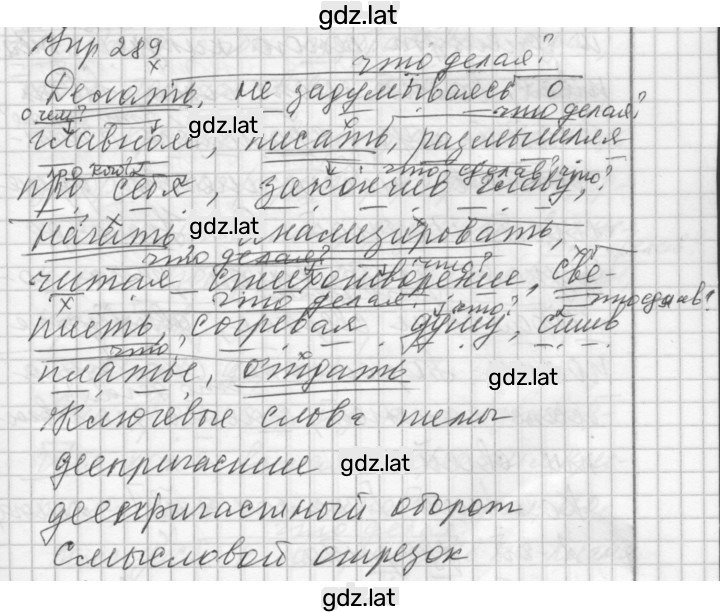 gdz.lat
Упр 289
что делая?
Делать, не задумываясь о
о чём? что делая?
gdz.lat
главном, писать, размышляя
про кого? что сделав? что?
про себя, закончив главу,
gdz.lat
начать анализировать,
что делая? что?
читая стихотворение, све-
что делая? что? что сделав?
тить, согревая душу, сшив
что?
платье, отдать
gdz.lat
Ключевые слова темы
деепричастие
gdz.lat
деепричастный оборот
смысловой отрезок
gdz.lat